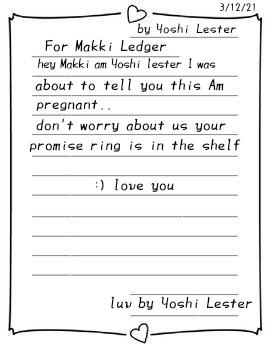 3/12/21
by Yoshi Lester
For Makki Ledger
hey Makki am Yoshi lester I was
about to tell you this Am
pregnant..
don't worry about us your
promise ring is in the shelf
:) love you
luv by Yoshi Lester